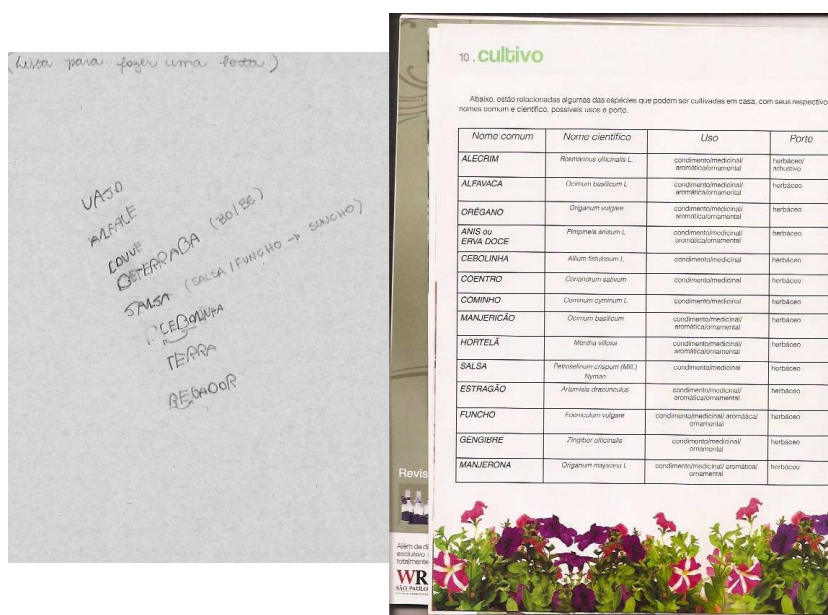 (Lista para fazer uma horta)
VASO
ALFACE
COUVE
BETERRABA (BO/BE)
SALSA (SALSA / FUNCHO → SUNCHO)
CEBOLINHA
TERRA
REGADOR
10 . cultivo
Abaixo, estão relacionadas algumas das espécies que podem ser cultivadas em casa, com seus respectivo
nomes comum e científico, possíveis usos e porte.
Nome comum Nome científico Uso Porte
ALECRIM Rosmarinus officinalis L. condimento/medicinal/ aromática/ornamental herbáceo/ arbustivo
ALFAVACA Ocimum basilicum L condimento/medicinal/ aromática/ornamental herbáceo
ORÉGANO Origanum vulgare condimento/medicinal/ aromática/ornamental herbáceo
ANIS ou ERVA DOCE Pimpinela anisum L condimento/medicinal/ aromática/ornamental herbáceo
CEBOLINHA Allium fistulosum L condimento/medicinal herbáceo
COENTRO Coriandrum sativum condimento/medicinal herbáceo
COMINHO Cominum cyminum L condimento/medicinal herbáceo
MANJERICÃO Ocimum basilicum condimento/medicinal/ aromática/ornamental herbáceo
HORTELÃ Mentha villosa condimento/medicinal/ aromática/ornamental herbáceo
SALSA Petroselinum crispum (Mill.) Nyman condimento/medicinal herbáceo
ESTRAGÃO Artemisia dracunculus condimento/medicinal/ aromática/ornamental herbáceo
FUNCHO Foeniculum vulgare condimento/medicinal/ aromática/ ornamental herbáceo
GENGIBRE Zingiber officinalis condimento/medicinal/ ornamental herbáceo
MANJERONA Origanum majorana L condimento/medicinal/ aromática/ ornamental herbáceo
Revis
Além de di
exclusivo
totalmente
WR
SÃO PAULO